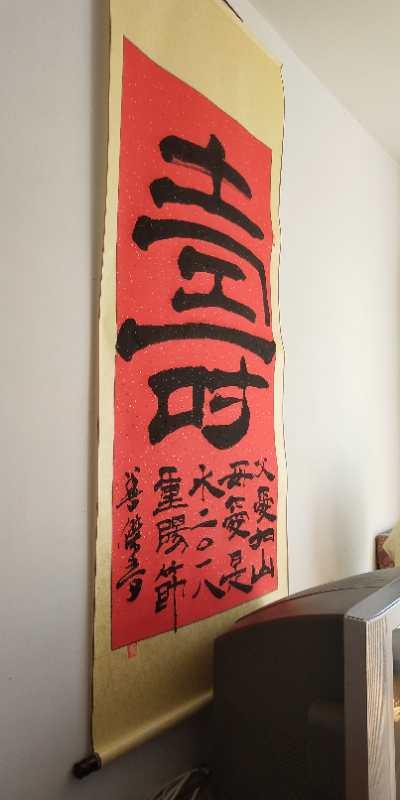 壽
父愛如山
母愛是
水二〇一八
重陽節
善書